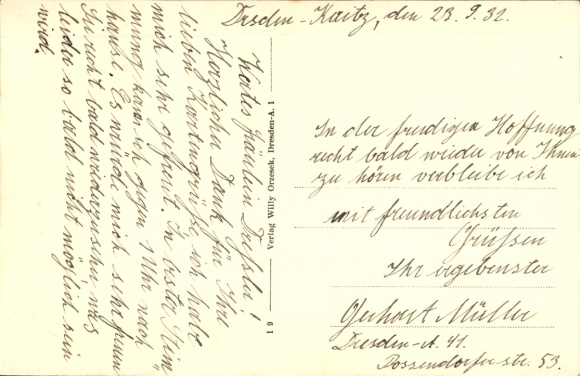 Drsden-Kaitz, den 23.9.32.
Wertes Fräulein Dressler!
Herzlichen Dank für Ihre
lieben Kartengrüße ich habe
mich sehr gefreut. In bester Stim
mung kam ich gegen 1 Uhr nach
hause. Es würde mich sehr freun
Sie recht bald wiederzusehn was
leider so bald nicht möglich sein
wird.
19 Verlag Willy Orzesek, Dresden-A. 1
In der freudigen Hoffnung
recht bald wieder von Ihnen
zu hören verbleibe ich
mit freundlichsten
Grüßen
Ihr ergebenster
Gerhart Müller
Dresden-A. 41.
Possendorferstr. 53.